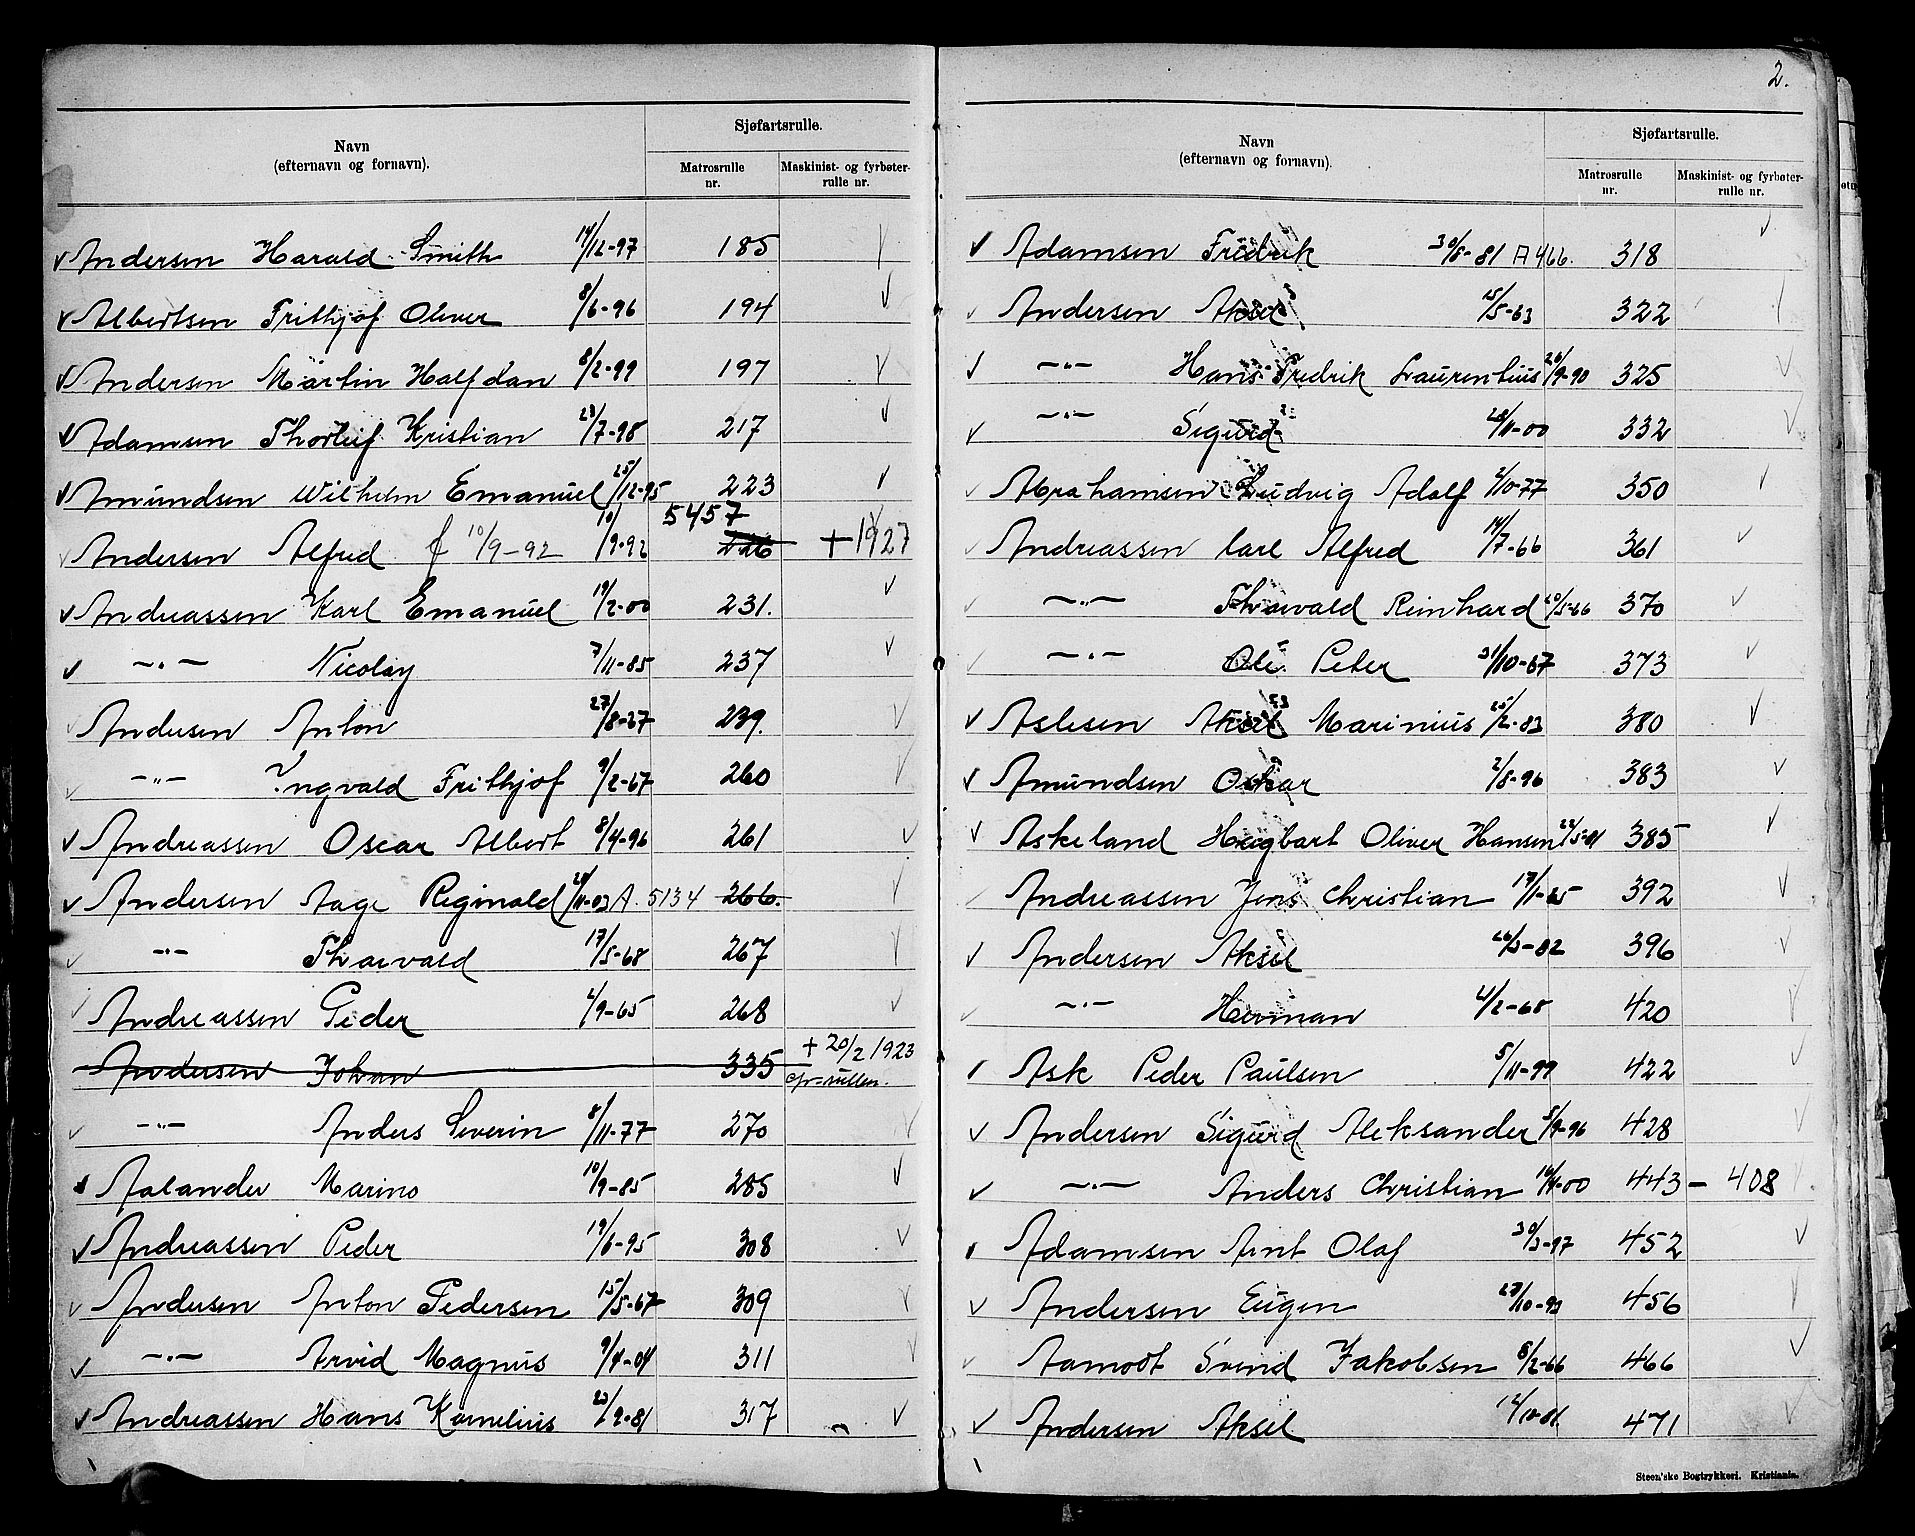 Navn
(efternavn og fornavn).
Sjøfartsrulle.
Matrosrulle nr.
Maskinist- og fyrbøter-rulle nr.
✓ Andersen Harald Smith 14/12-97 185 ✓
✓ Albertsen Frithjof Oliver 8/6-96 194 ✓
✓ Andersen Martin Halfdan 8/2-99 197 ✓
✓ Adamsen Thorleif Kristian 23/7-98 217 ✓
✓ Amundsen Wilhelm Emanuel 25/12-95 223 ✓
✓ Andersen Alfred f 10/9-92 10/9-92 5457 226 +1927
✓ Andreassen Karl Emanuel 19/2-00 231. ✓
✓ -"- Nicolay 7/11-85 237 ✓
Andersen Anton 27/8-67 239. ✓
✓ -"- Yngvald Frithjof 9/2-67 260 ✓
✓ Andreassen Oscar Albert 8/4-96 261 ✓
✓ Andersen Aage Reginald /11-03 A. 5134 266. ✓
✓ -"- Thorvald 17/5-68 267 ✓
✓ Andreassen Peder 4/9-65 268 ✓
Andersen Johan 335 + 20/2 1923
-rullen.
✓ -"- Anders Severin 8/11-77 270 ✓
✓ Aalander Marino 10/9-85 285 ✓
✓ Andreassen Peder 19/6-95 308 ✓
✓ Andersen Anton Pedersen 15/5-67 309 ✓
✓ -"- Arvid Magnus 9/4-04 311 ✓
✓ Andreassen Hans Kornelius 23/9-81 317 ✓
2.
Navn
(efternavn og fornavn).
Sjøfartsrulle.
Matrosrulle nr.
Maskinist- og fyrbøter-rulle nr.
✓ Adamsen Fredrik 30/8-81 A 466. 318 ✓
✓ Andersen Aksel 15/5-63 322
✓ -"- Hans Fredrik Laurentius 20/9-90 325 ✓
✓ -"- Sigurd /11-00 332 ✓
✓ Abrahamsen Ludvig Adolf 2/10-77 350 ✓
✓ Andreassen Carl Alfred 14/7-66 361 ✓
✓ -"- Thorvald Reinhard 20/5-66 370 ✓
✓ -"- Ole Peter 31/10-67 373 ✓
✓ Aslesen Aksel Marinius 25/2-83 380 ✓
✓ Amundsen Oskar 2/8-96 383 ✓
✓ Askeland Hagbart Oliver Hansen 22/5-81 385 ✓
✓ Andreassen Jens Christian 17/1-65 392 ✓
✓ Andersen Aksel 26/3-82 396 ✓
✓ -"- Herman 4/2-68 420 ✓
Ask Peder Paulsen 5/11-99 422 ✓
✓ Andersen Sigurd Aleksander 5/9-96 428 ✓
✓ -"- Anders Christian 443 - 408
Adamsen Arnt Olaf 30/3-97 452 ✓
✓ Andersen Eugen 27/10-93 456 ✓
✓ Aamodt Svend Jakobsen 8/2-66 466 ✓
✓ Andersen Aksel 12/10-81 471 ✓
Steen'ske Bogtrykkeri. Kristiania.